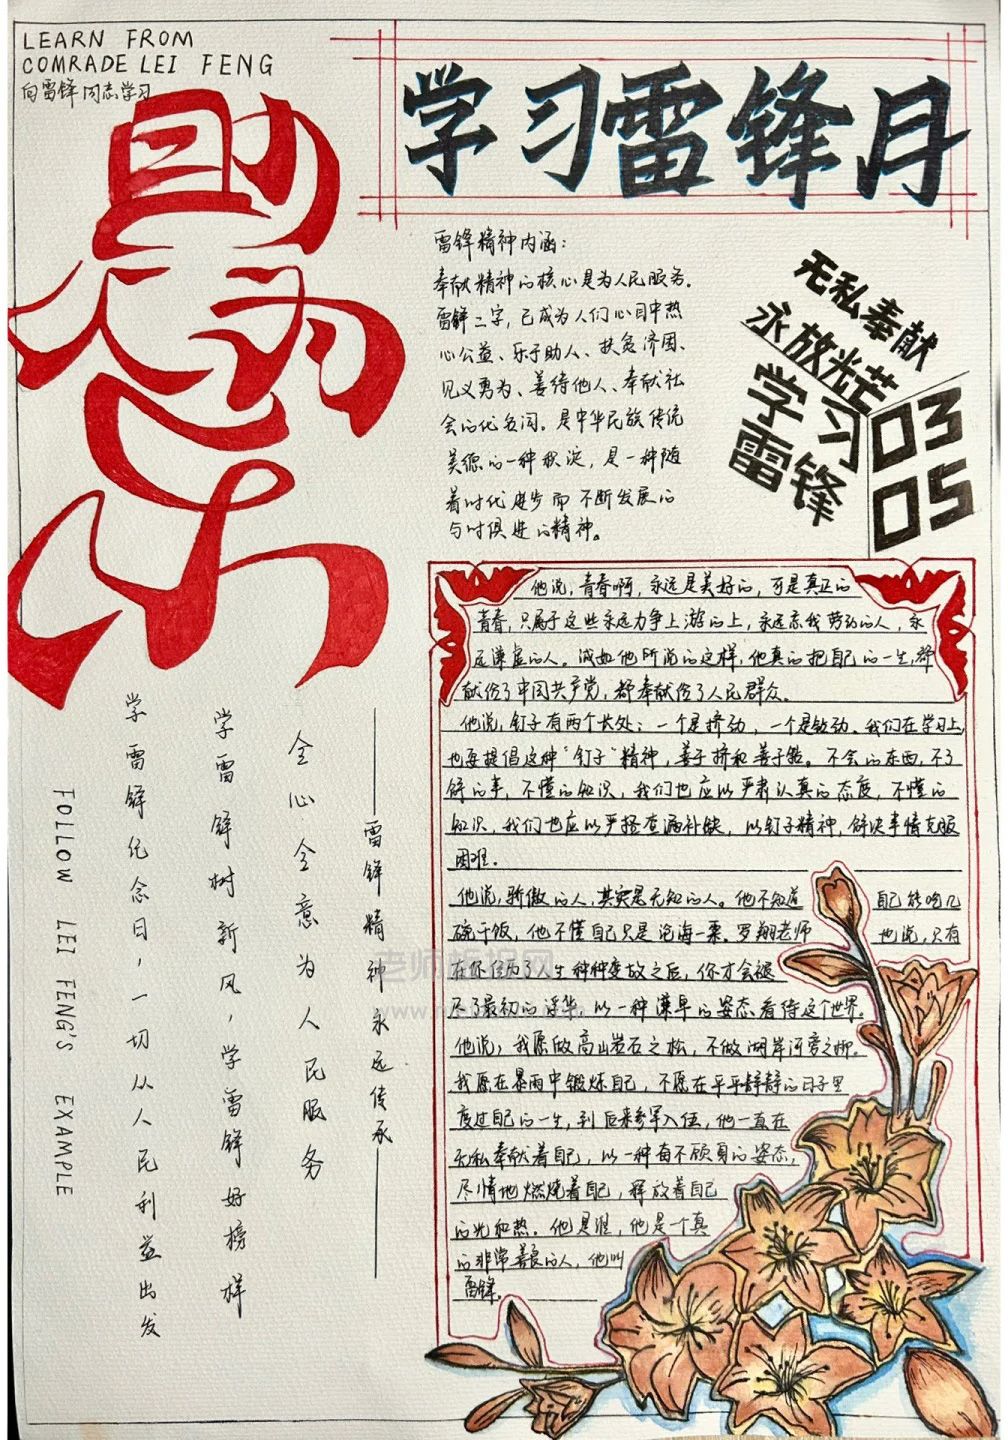 LEARN FROM
COMRADE LEI FENG
向雷锋同志学习
学习雷锋月
助人为
雷锋精神内涵：
奉献精神的核心是为人民服务。
雷锋二字，已成为人们心目中热
心公益、乐于助人、扶贫济困、
见义勇为、善待他人、奉献社
会的代名词。是中华民族传统
美德的一种积淀，是一种随
着时代进步而不断发展的
与时俱进的精神。
无私奉献
永放光芒
学习
雷锋
03
05
他说，青春啊，永远是美好的，可是真正的
青春，只属于这些永远力争上游的上，永远忘我劳动的人，永
远谦虚的人。诚如他所说的这样，他真的把自己的一生，都
献给了中国共产党，都奉献给了人民群众。
他说，钉子有两个长处：一个是挤劲，一个是钻劲。我们在学习上，
也要提倡这种“钉子”精神，善于挤和善于钻。不会的东西，不了
解的事，不懂的知识，我们也应以严肃认真的态度，不懂的
知识，我们也应以严格查漏补缺，以钉子精神，解决事情克服
困难。
他说，骄傲的人，其实是无知的人。他不知道自己能吃几
碗干饭，他不懂自己只是沧海一粟。罗翔老师也说，只有
在你经历了一生种种变故之后，你才会褪
尽了最初的浮华，以一种谦卑的姿态看待这个世界。
他说，我愿做高山岩石之松，不做湖岸河旁之柳。
我愿在暴雨中锻炼自己，不愿在平平静静的日子里
度过自己的一生，到后来参军入伍，他一直在
无私奉献着自己，以一种奋不顾身的姿态，
尽情地燃烧着自己，释放着自己
的光和热。他是谁，他是一个真
的非常善良的人，他叫
雷锋。
——雷锋精神永远传承——
全心全意为人民服务
学雷锋树新风，学雷锋好榜样
学雷锋纪念日，一切从人民利益出发
FOLLOW LEI FENG'S EXAMPLE
老师板报网